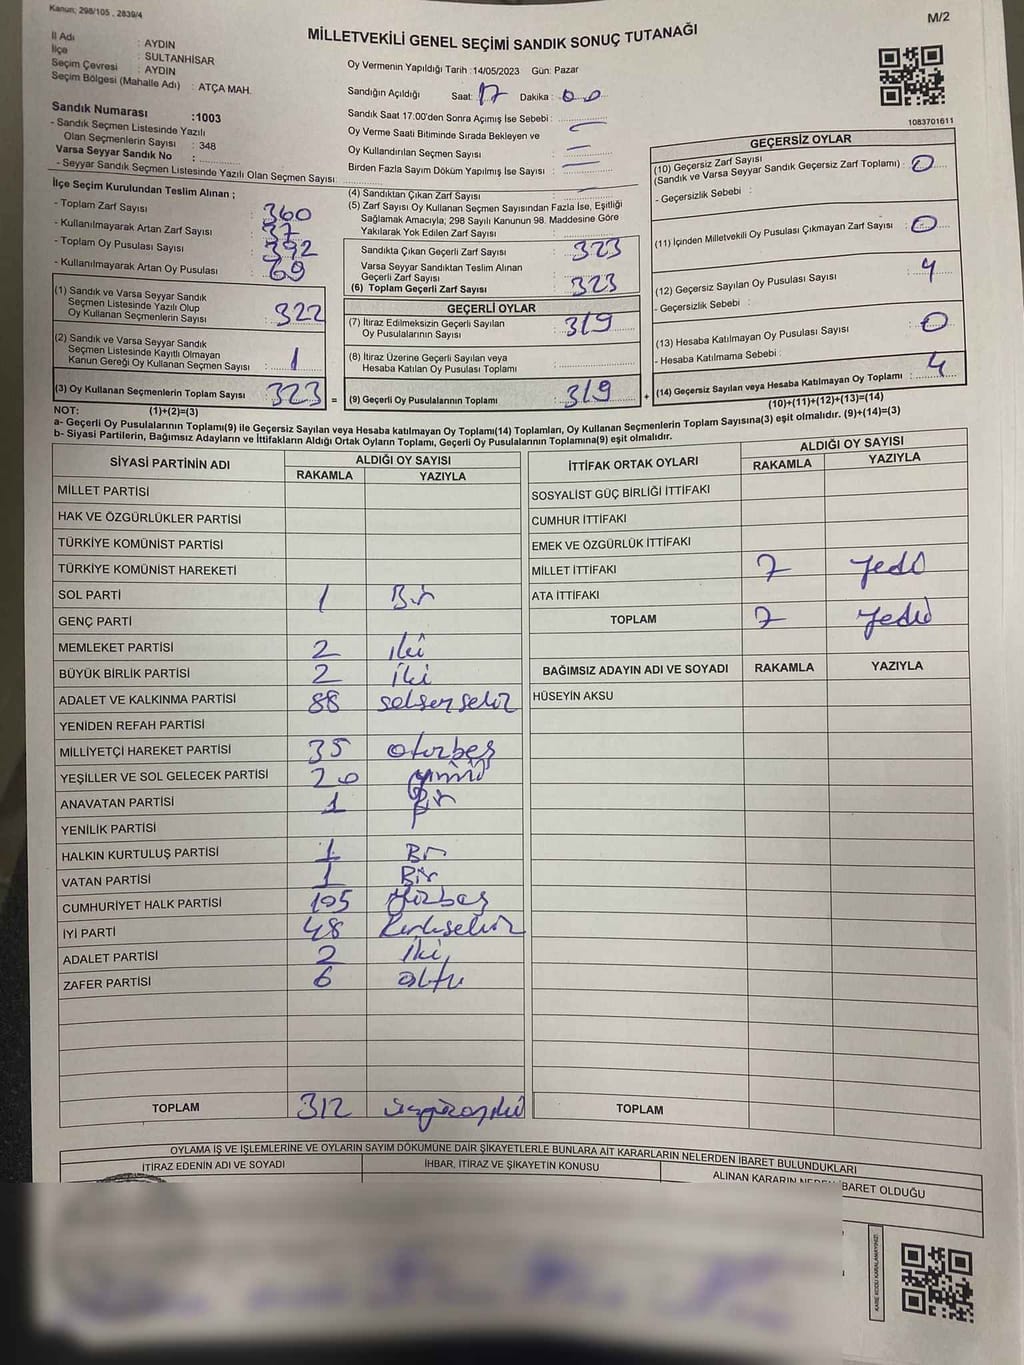 Kanun; 298/105 , 2839/4
M/2
MİLLETVEKİLİ GENEL SEÇİMİ SANDIK SONUÇ TUTANAĞI
İl Adı : AYDIN
İlçe : SULTANHİSAR
Seçim Çevresi : AYDIN
Seçim Bölgesi (Mahalle Adı) : ATÇA MAH.
Sandık Numarası :1003
- Sandık Seçmen Listesinde Yazılı
Olan Seçmenlerin Sayısı : 348
Varsa Seyyar Sandık No :
- Seyyar Sandık Seçmen Listesinde Yazılı Olan Seçmen Sayısı:
Oy Vermenin Yapıldığı Tarih :14/05/2023 Gün: Pazar
Sandığın Açıldığı Saat: 17 Dakika : 00
Sandık Saat 17.00'den Sonra Açımış İse Sebebi :
Oy Verme Saati Bitiminde Sırada Bekleyen ve
Oy Kullandırılan Seçmen Sayısı : —
Birden Fazla Sayım Döküm Yapılmış İse Sayısı : —
1083701611
İlçe Seçim Kurulundan Teslim Alınan ;
- Toplam Zarf Sayısı : 360
- Kullanılmayarak Artan Zarf Sayısı : 37
- Toplam Oy Pusulası Sayısı : 392
- Kullanılmayarak Artan Oy Pusulası : 69
(1) Sandık ve Varsa Seyyar Sandık
Seçmen Listesinde Yazılı Olup
Oy Kullanan Seçmenlerin Sayısı : 322
(2) Sandık ve Varsa Seyyar Sandık
Seçmen Listesinde Kayıtlı Olmayan
Kanun Gereği Oy Kullanan Seçmen Sayısı : 1
(3) Oy Kullanan Seçmenlerin Toplam Sayısı : 323 =
(4) Sandıktan Çıkan Zarf Sayısı :
(5) Zarf Sayısı Oy Kullanan Seçmen Sayısından Fazla İse, Eşitliği
Sağlamak Amacıyla; 298 Sayılı Kanunun 98. Maddesine Göre
Yakılarak Yok Edilen Zarf Sayısı :
Sandıkta Çıkan Geçerli Zarf Sayısı : 323
Varsa Seyyar Sandıktan Teslim Alınan
Geçerli Zarf Sayısı
(6) Toplam Geçerli Zarf Sayısı : 323
GEÇERLİ OYLAR
(7) İtiraz Edilmeksizin Geçerli Sayılan
Oy Pusulalarının Sayısı : 319
(8) İtiraz Üzerine Geçerli Sayılan veya
Hesaba Katılan Oy Pusulası Toplamı :
(9) Geçerli Oy Pusulalarının Toplamı : 319 +
GEÇERSİZ OYLAR
(10) Geçersiz Zarf Sayısı
(Sandık ve Varsa Seyyar Sandık Geçersiz Zarf Toplamı) : 0
- Geçersizlik Sebebi :
(11) İçinden Milletvekili Oy Pusulası Çıkmayan Zarf Sayısı : 0
(12) Geçersiz Sayılan Oy Pusulası Sayısı : 4
- Geçersizlik Sebebi :
(13) Hesaba Katılmayan Oy Pusulası Sayısı : 0
- Hesaba Katılmama Sebebi :
(14) Geçersiz Sayılan veya Hesaba Katılmayan Oy Toplamı : 4
(10)+(11)+(12)+(13)=(14)
NOT: (1)+(2)=(3)
a- Geçerli Oy Pusulalarının Toplamı(9) ile Geçersiz Sayılan veya Hesaba katılmayan Oy Toplamı(14) Toplamları, Oy Kullanan Seçmenlerin Toplam Sayısına(3) eşit olmalıdır. (9)+(14)=(3)
b- Siyasi Partilerin, Bağımsız Adayların ve İttifakların Aldığı Ortak Oyların Toplamı, Geçerli Oy Pusulalarının Toplamına(9) eşit olmalıdır.
SİYASİ PARTİNİN ADI ALDIĞI OY SAYISI
RAKAMLA YAZIYLA
MİLLET PARTİSİ
HAK VE ÖZGÜRLÜKLER PARTİSİ
TÜRKİYE KOMÜNİST PARTİSİ
TÜRKİYE KOMÜNİST HAREKETİ
SOL PARTİ 1 Bir
GENÇ PARTİ
MEMLEKET PARTİSİ 2 iki
BÜYÜK BİRLİK PARTİSİ 2 iki
ADALET VE KALKINMA PARTİSİ 88 seksensekiz
YENİDEN REFAH PARTİSİ
MİLLİYETÇİ HAREKET PARTİSİ 35 otuzbeş
YEŞİLLER VE SOL GELECEK PARTİSİ 20 yirmi
ANAVATAN PARTİSİ 1 Bir
YENİLİK PARTİSİ
HALKIN KURTULUŞ PARTİSİ 1 Bir
VATAN PARTİSİ 1 Bir
CUMHURİYET HALK PARTİSİ 105 yüzbeş
İYİ PARTİ 48 kırksekiz
ADALET PARTİSİ 2 iki
ZAFER PARTİSİ 6 altı
TOPLAM 312 üçyüzoniki
İTTİFAK ORTAK OYLARI ALDIĞI OY SAYISI
RAKAMLA YAZIYLA
SOSYALİST GÜÇ BİRLİĞİ İTTİFAKI
CUMHUR İTTİFAKI
EMEK VE ÖZGÜRLÜK İTTİFAKI
MİLLET İTTİFAKI 7 yedi
ATA İTTİFAKI
TOPLAM 7 yedi
BAĞIMSIZ ADAYIN ADI VE SOYADI RAKAMLA YAZIYLA
HÜSEYİN AKSU
TOPLAM
OYLAMA İŞ VE İŞLEMLERİNE VE OYLARIN SAYIM DÖKÜMÜNE DAİR ŞİKAYETLERLE BUNLARA AİT KARARLARIN NELERDEN İBARET BULUNDUKLARI
İTİRAZ EDENİN ADI VE SOYADI İHBAR, İTİRAZ VE ŞİKAYETİN KONUSU ALINAN KARARIN NEDEN İBARET OLDUĞU
KARE KODU KARALAMAYINIZ!